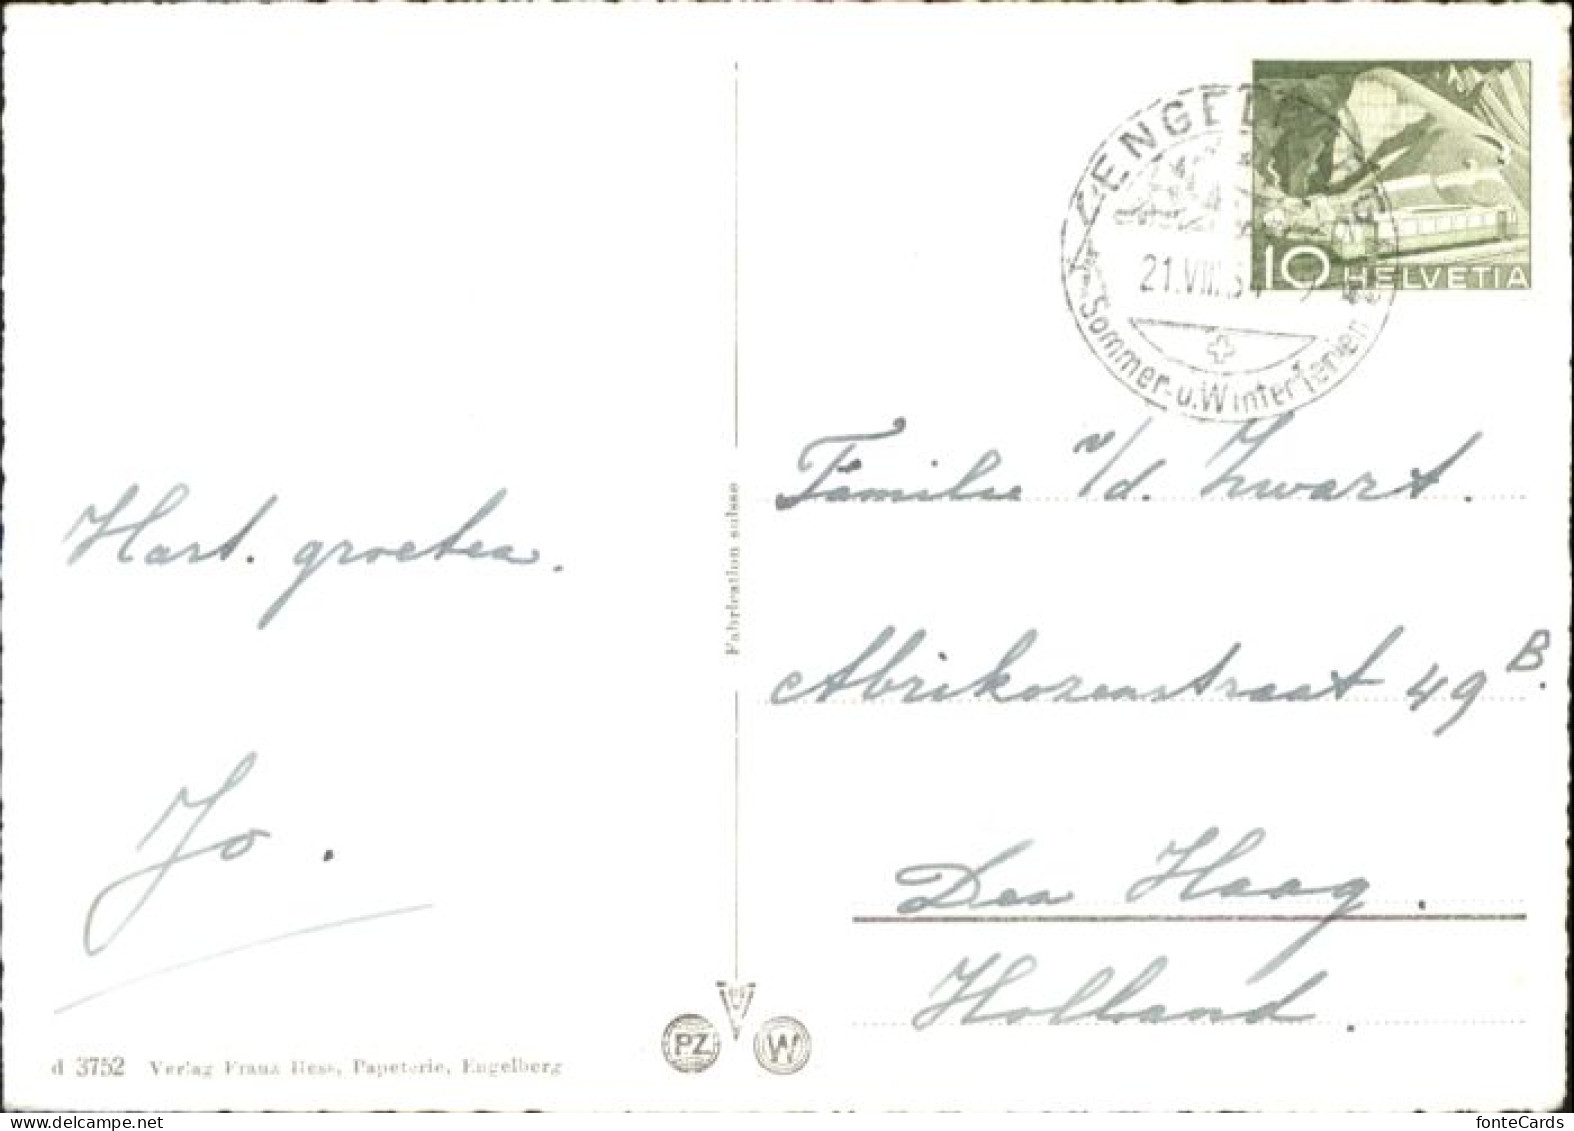 ENGELBERG
21.VIII.54
Sommer- u. Winterferien
10 HELVETIA
Hart. groeten.
Jo.
Fabrication suisse
Familie v/d. Zwart.
Abrikozenstraat 49 B.
Den Haag.
Holland.
PZ W
d 3752 Verlag Franz Hess, Papeterie, Engelberg
fonteCards
www.delcampe.net